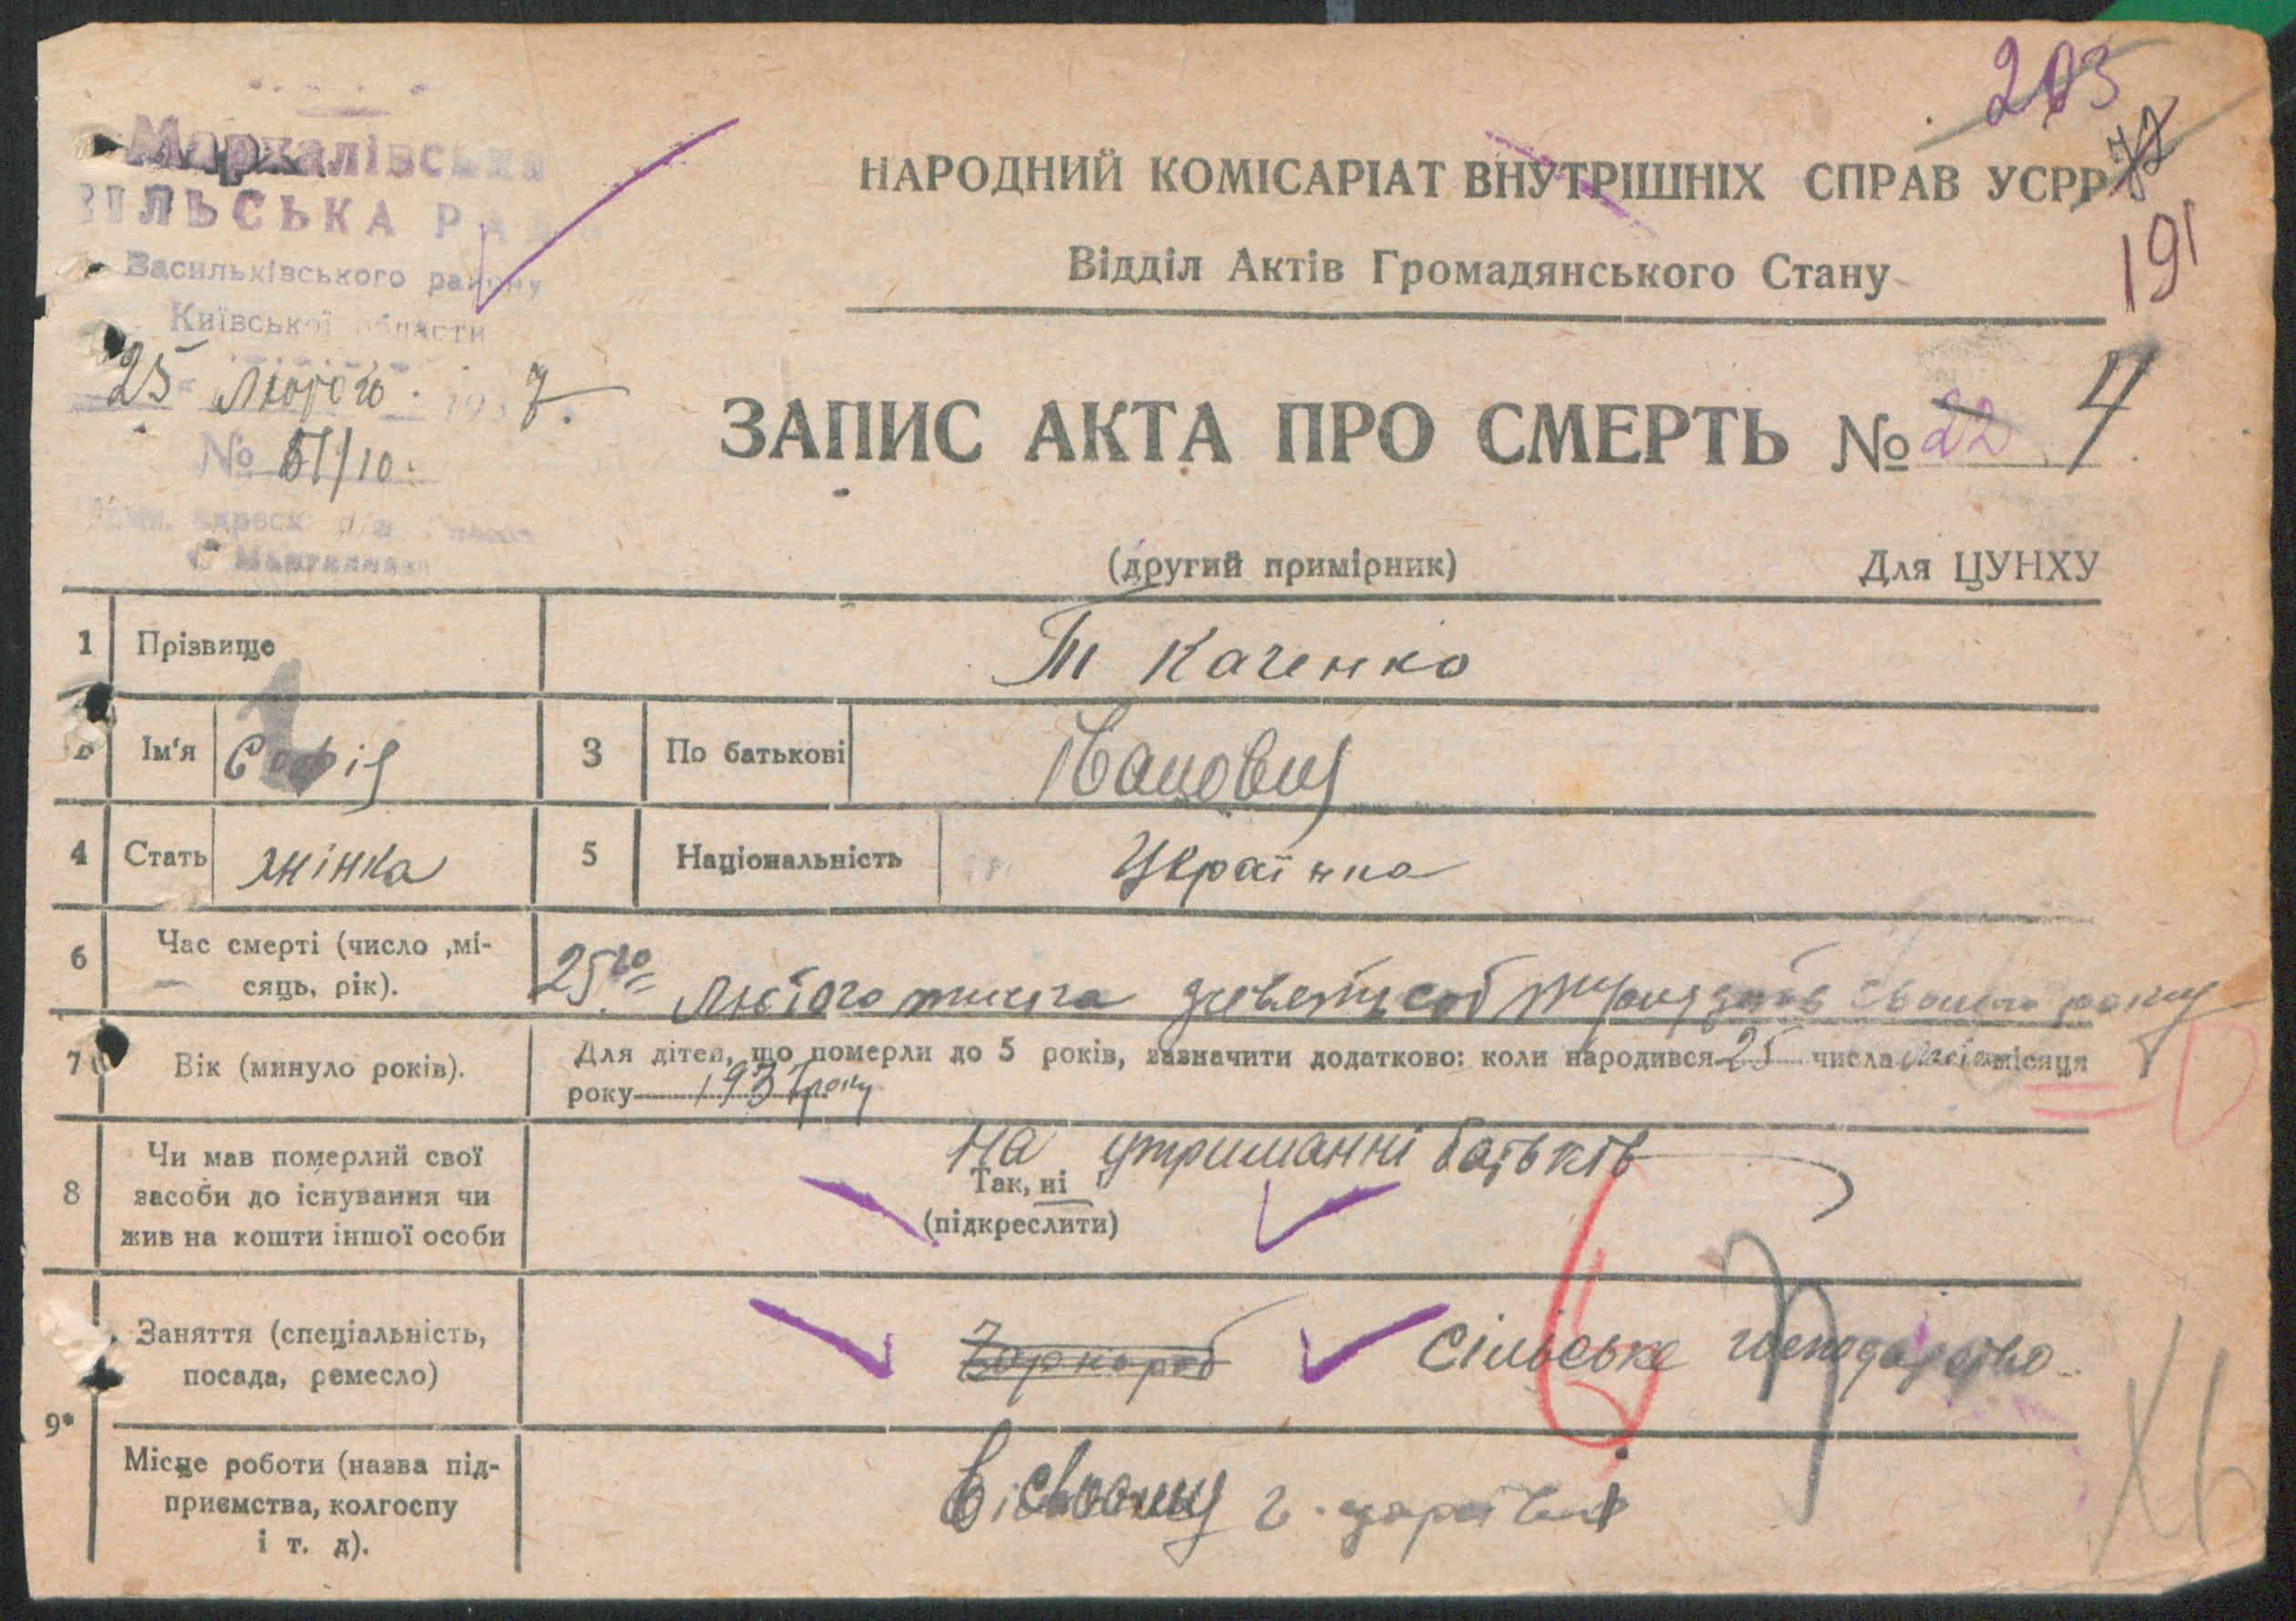 203
72
191
Мархалівська
СІЛЬСЬКА РАДА
Васильківського району
Київської области
25 Лютого 1937.
№ 51/10.
НАРОДНИЙ КОМІСАРІАТ ВНУТРІШНІХ СПРАВ УСРР
Відділ Актів Громадянського Стану
ЗАПИС АКТА ПРО СМЕРТЬ № 22 4
(другий примірник)
Для ЦУНХУ
1 Прізвище Ткаченко
2 Ім'я Софія 3 По батькові Івановна
4 Стать жінка 5 Національність Українка
6 Час смерті (число ,мі-
сяць, рік).
25го Лютого тисяча девятсот року
7 Вік (минуло років).
Для дітей, що померли до 5 років, зазначити додатково: коли народився 25 числа місяця
року 1937 року
8 Чи мав померлий свої
засоби до існування чи
жив на кошти іншої особи
на утриманні батьків
Так, ні
(підкреслити)
9*
Заняття (спеціальність,
посада, ремесло)
Чорнороб Сільське господарство
Місце роботи (назва під-
приємства, колгоспу
і т. д).
В своому